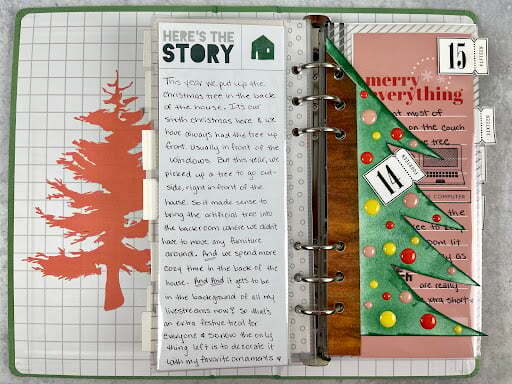 HERE'S THE
STORY
This year we put up the
christmas tree in the back
of the house. It's our
sixth christmas here & we
have always had the tree up
front. usually in front of the
windows. But this year, we
picked up a tree to go out-
side, right in front of the
house. so it made sense to
bring the artificial tree into
the backroom where we didn't
have to move any furniture
around. And we spend more
cozy time in the back of the
house. And and it gets to be
in the background of all my
livestreams now! So that's
an extra festive treat for
everyone & so now the only
thing left is to decorate it
with my favorite ornaments
15
FIFTEEN
merry
everything
at most of
on the couch
tree
14
FOURTEEN
COMPUTER
the
ee to
om lit
y as
th
are really
extra short